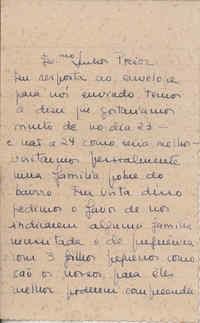 Ex.mo Senhor Prior
Em resposta ao envelope
para nós enviado temos
a dizer que gostariamos
muito de no dia 23 -
e não a 24 como seria melhor -
visitarmos pessoalmente
uma familia pobre do
bairro. Em vista disso
pedimos o favor de nos
indicarem alguma familia
necessitada e de preferencia
com 3 filhos pequenos como
são os nossos, para eles
melhor poderem compreender